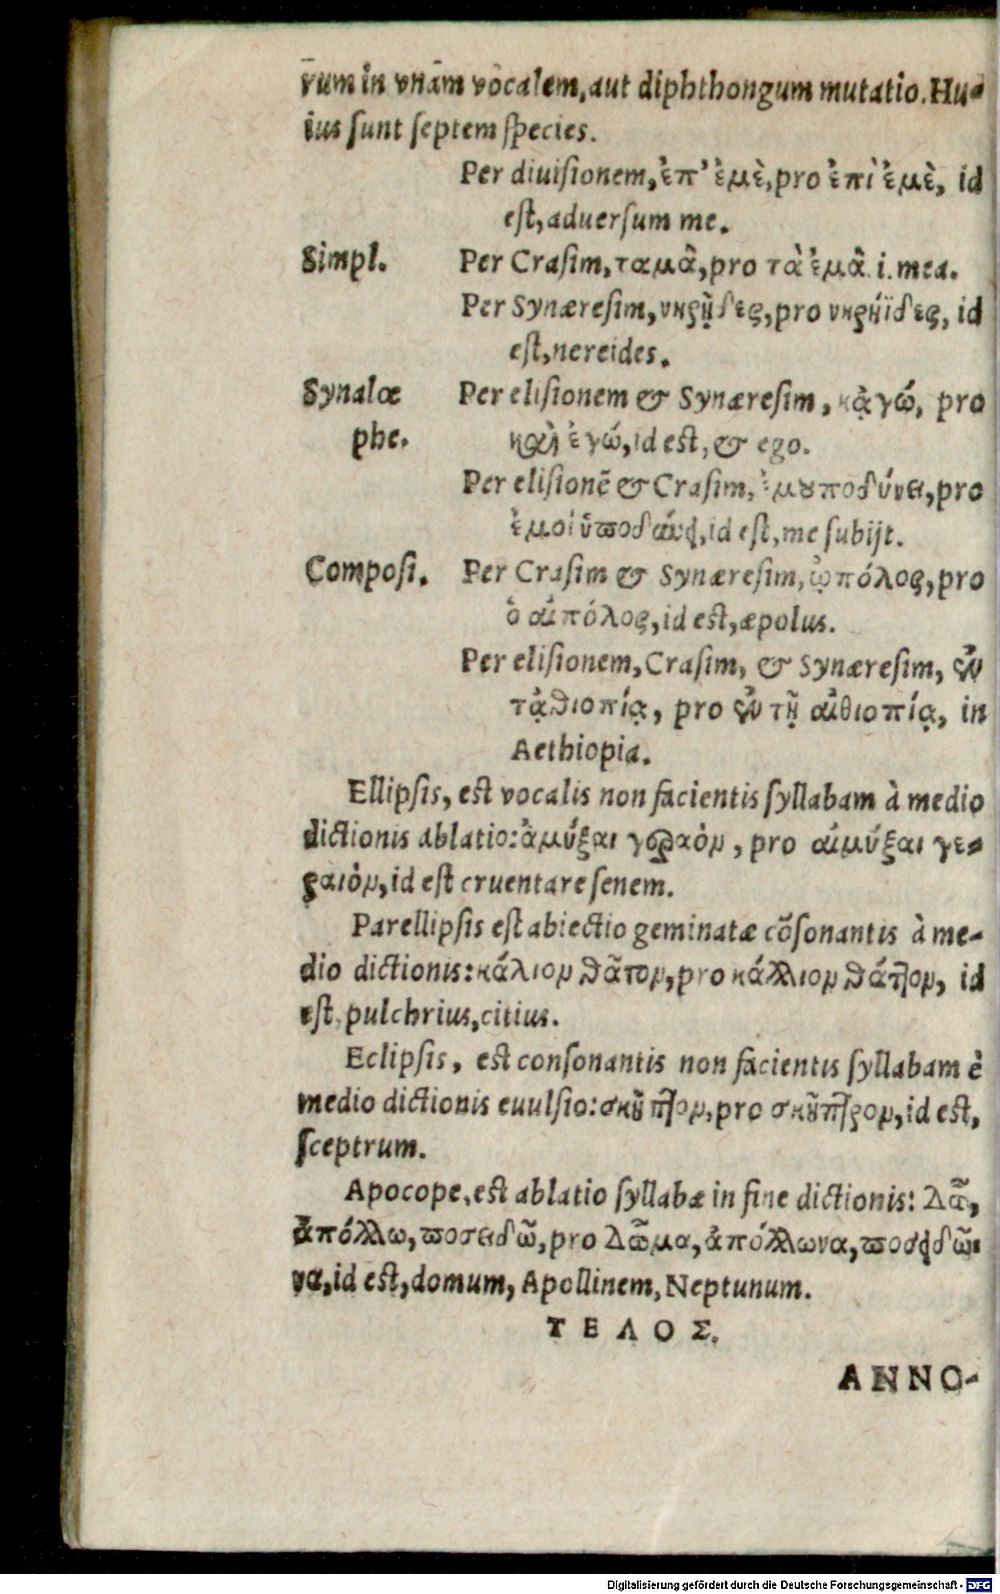 rum in vnam vocalem, aut diphthongum mutatio. Hu-
ius sunt septem species.
Per diuisionem, ἐπ' ἐμὲ, pro ἐπὶ ἐμὲ, id
est, aduersum me.
Simpl. Per Crasim, ταμᾶ, pro τὰ ἐμᾶ. i. mea.
Per Synæresim, νηρῇδες, pro νηρήϊδες, id
est, nereides.
Synalœ Per elisionem & Synæresim, κᾀγώ, pro
phe. καὶ ἐγώ, id est, & ego.
Per elisionē & Crasim, ἐμουποδύνει, pro
ἐμοὶ ὑποδύνει, id est, me subijt.
Composi. Per Crasim & Synæresim, ᾠπόλος, pro
ὁ αἰπόλος, id est, æpolus.
Per elisionem, Crasim, & Synæresim, ἐν
τᾀθιοπίᾳ, pro ἐν τῇ αἰθιοπίᾳ, in
Aethiopia.
Ellipsis, est vocalis non facientis syllabam à medio
dictionis ablatio: ἀμύξαι γεραὸν, pro αἰμύξαι γε-
ραιὸν, id est cruentare senem.
Parellipsis est abiectio geminatæ cōsonantis à me-
dio dictionis: κάλιον θᾶτον, pro κάλλιον θάττον, id
est, pulchrius, citius.
Eclipsis, est consonantis non facientis syllabam è
medio dictionis euulsio: σκῆπτον, pro σκῆπτρον, id est,
sceptrum.
Apocope, est ablatio syllabæ in fine dictionis: Δῶ,
ἀπόλλω, ποσειδῶ, pro Δῶμα, ἀπόλλωνα, ποσειδῶ-
να, id est, domum, Apollinem, Neptunum.
ΤΕΛΟΣ.
ANNO-
Digitalisierung gefördert durch die Deutsche Forschungsgemeinschaft - DFG